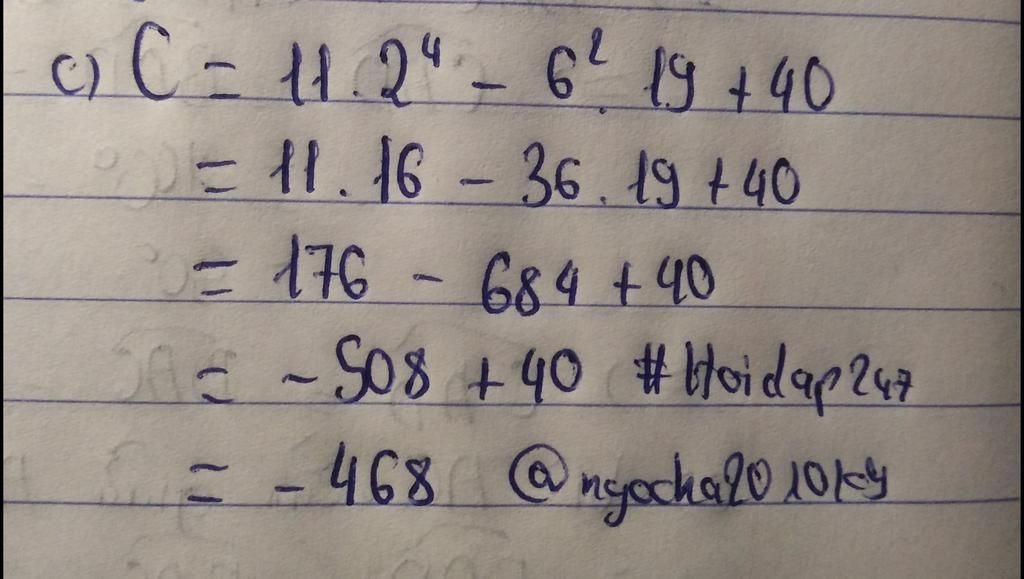 c) C = 11 . 2⁴ - 6² . 19 + 40
= 11 . 16 - 36 . 19 + 40
= 176 - 684 + 40
= - 508 + 40 #Hoidap247
= - 468 @ngocha2010ky